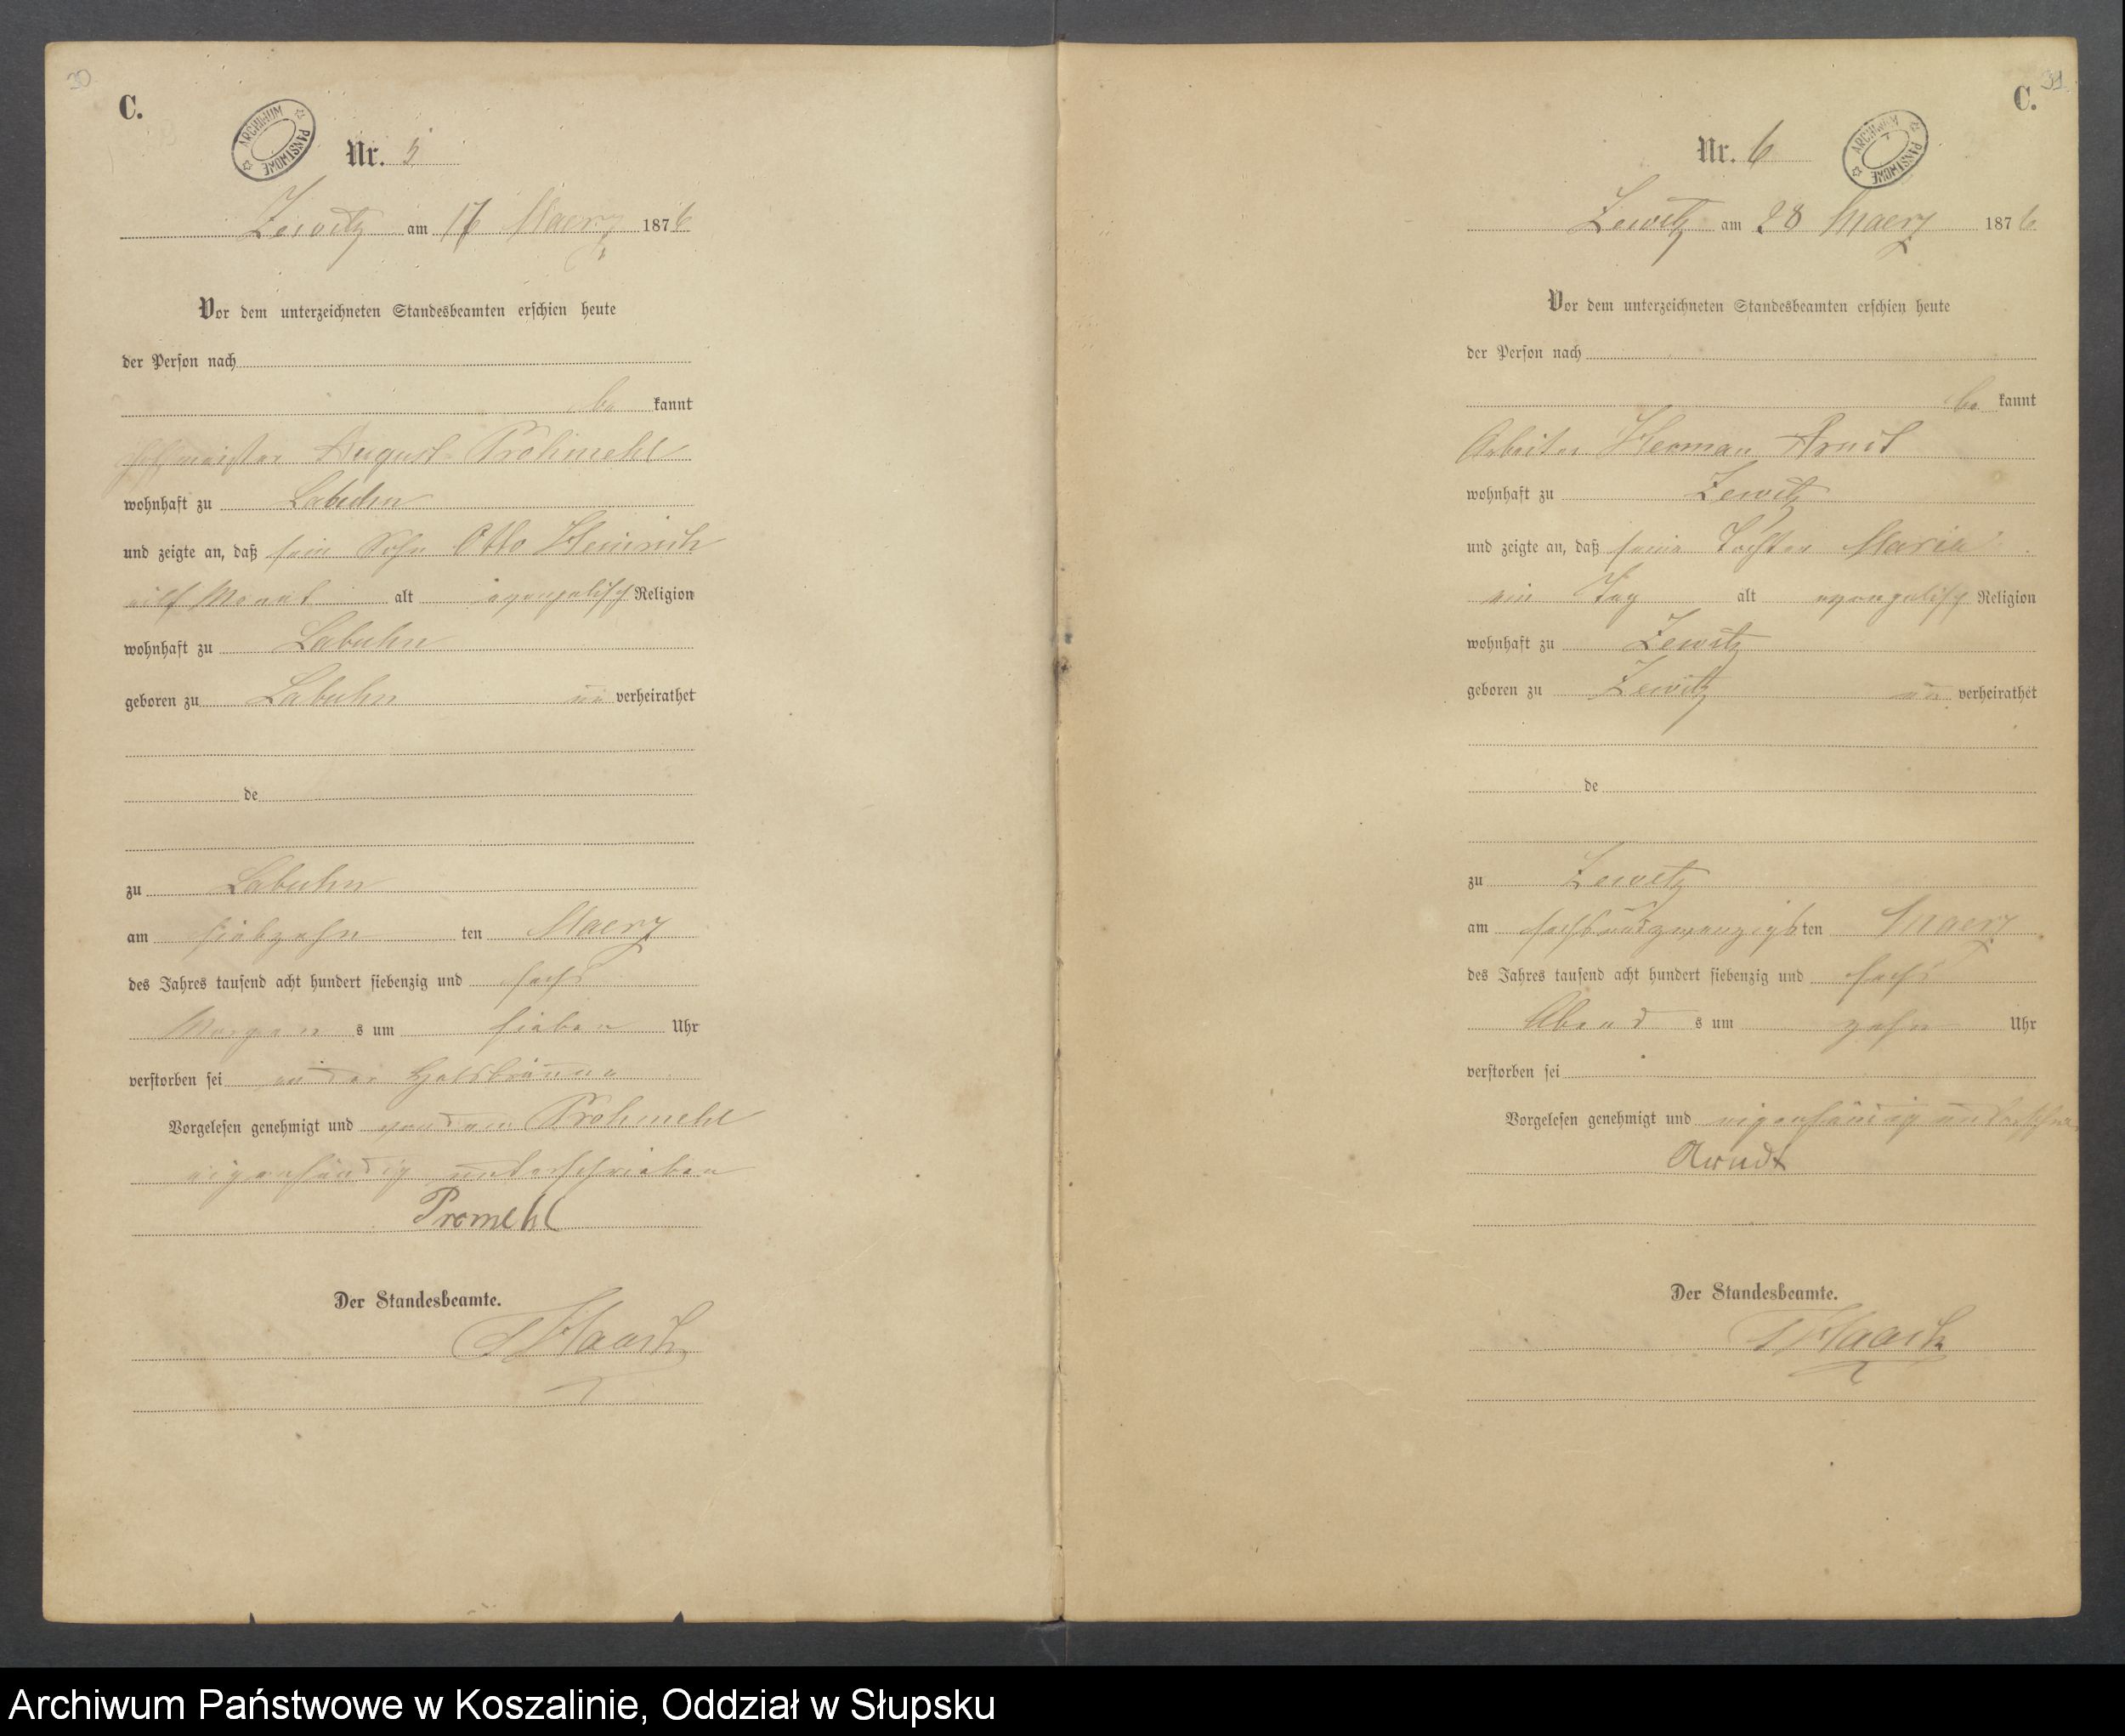 30
C.
ARCHIWUM PAŃSTWOWE
Nr. 5
Zewitz am 17 Maerz 1876
Vor dem unterzeichneten Standesbeamten erschien heute
der Person nach
be kannt
Hofmeister August Prohmehl
wohnhaft zu Labuhn
und zeigte an, daß sein Sohn Otto Heinrich
elf Monat alt evangelisch Religion
wohnhaft zu Labuhn
geboren zu Labuhn un verheirathet
de
zu Labuhn
am siebzehn ten Maerz
des Jahres tausend acht hundert siebenzig und sechs
Morgen s um sieben Uhr
verstorben sei an der Halsbräune
Vorgelesen genehmigt und von dem Prohmehl
eigenhändig unterschrieben
Promehl
Der Standesbeamte.
Haack
31
C.
Nr. 6
ARCHIWUM PAŃSTWOWE
Zewitz am 28 Maerz 1876
Vor dem unterzeichneten Standesbeamten erschien heute
der Person nach
be kannt
Arbeiter Herman Arndt
wohnhaft zu Zewitz
und zeigte an, daß seine Tochter Maria
ein Tag alt evangelisch Religion
wohnhaft zu Zewitz
geboren zu Zewitz un verheirathet
de
zu Zewitz
am sechsundzwanzigsten Maerz
des Jahres tausend acht hundert siebenzig und sechs
Abend s um zehn Uhr
verstorben sei
Vorgelesen genehmigt und eigenhändig
Arndt
Der Standesbeamte.
Haack
Archiwum Państwowe w Koszalinie, Oddział w Słupsku